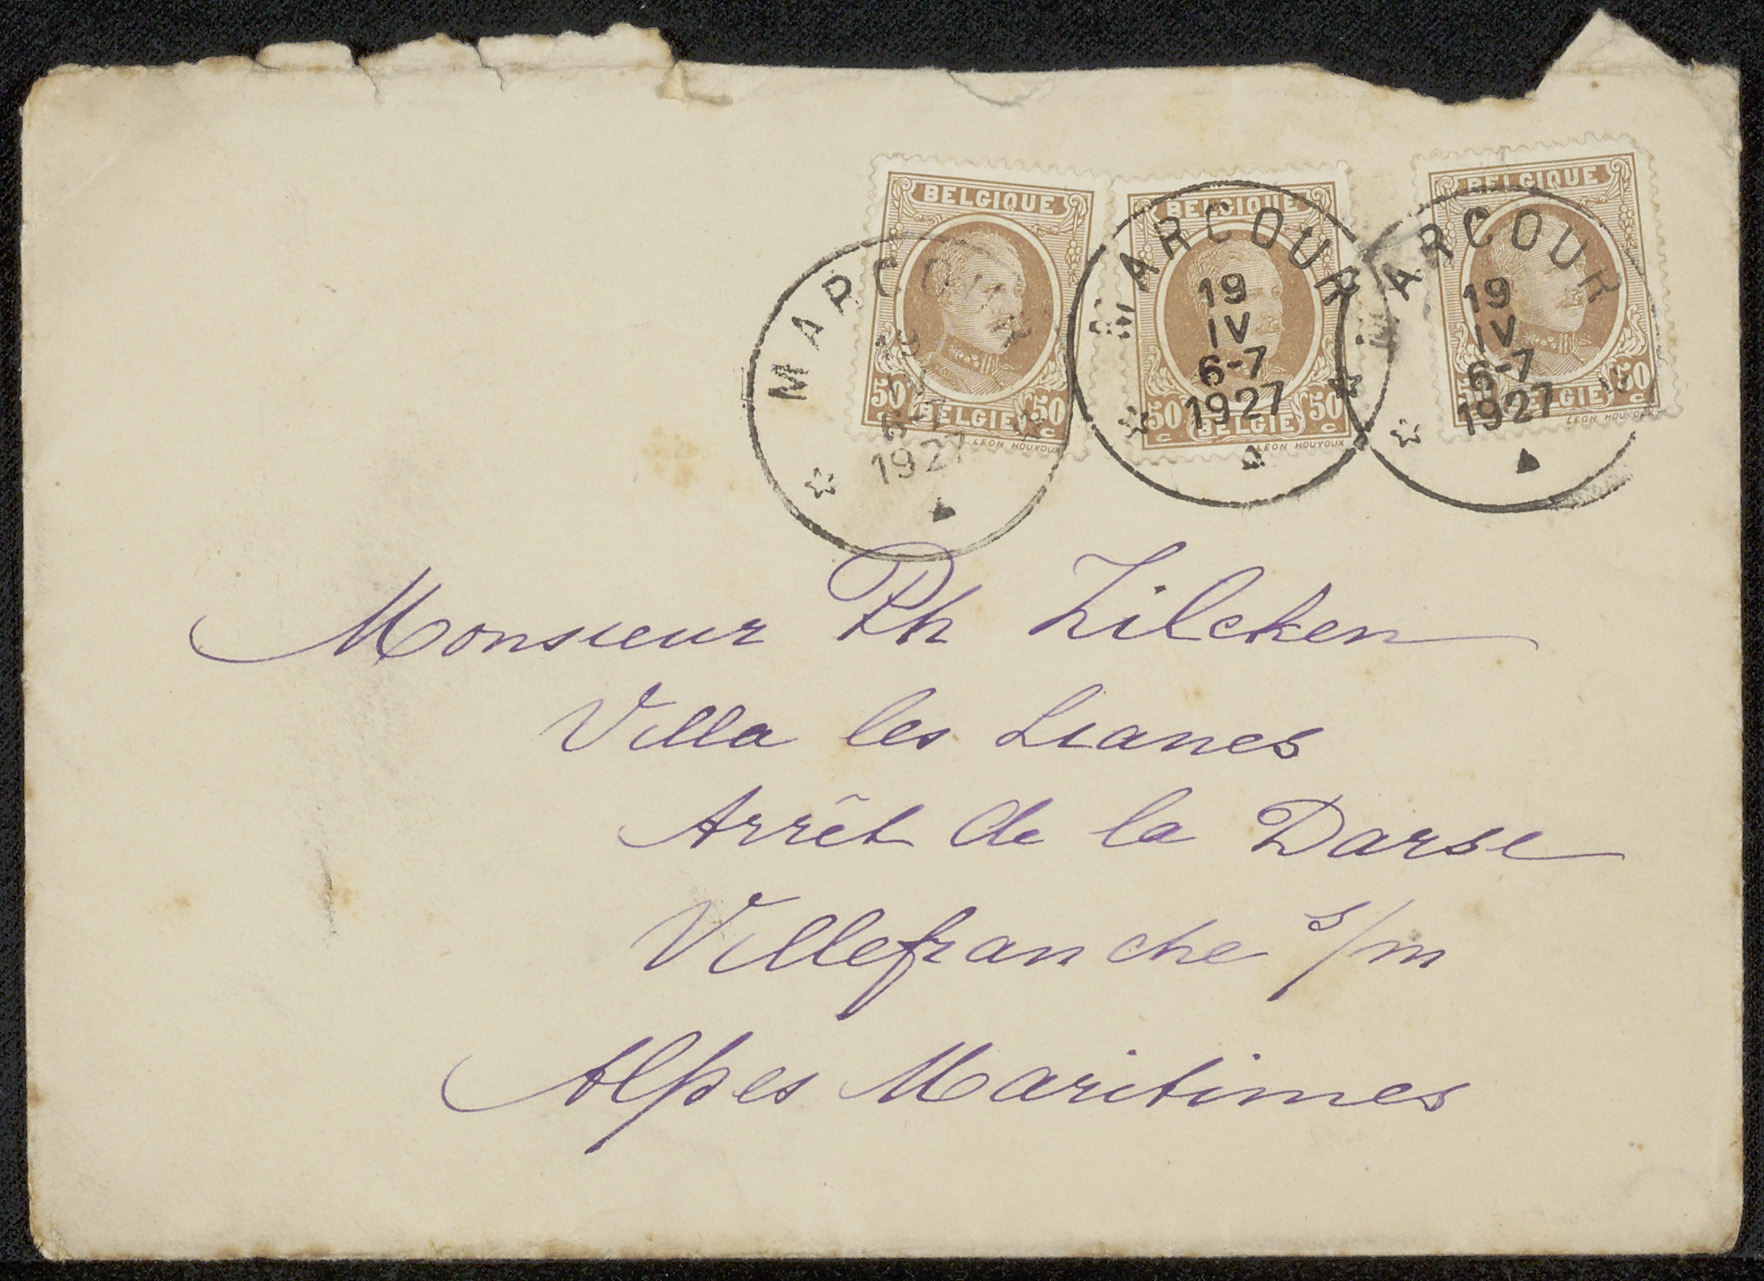 BELGIQUE BELGIQUE BELGIQUE
MARCOUR MARCOUR MARCOUR
19 19 19
IV IV IV
6-7 6-7 6-7
1927 1927 1927
50 50 50 50 50
c c c
BELGIE BELGIE BELGIE
LEON HOUYOUX LEON HOUYOUX LEON HOUYOUX
Monsieur Ph Zilcken
Villa les Lianes
Arrêt de la Darse
Villefranche s/m
Alpes Maritimes